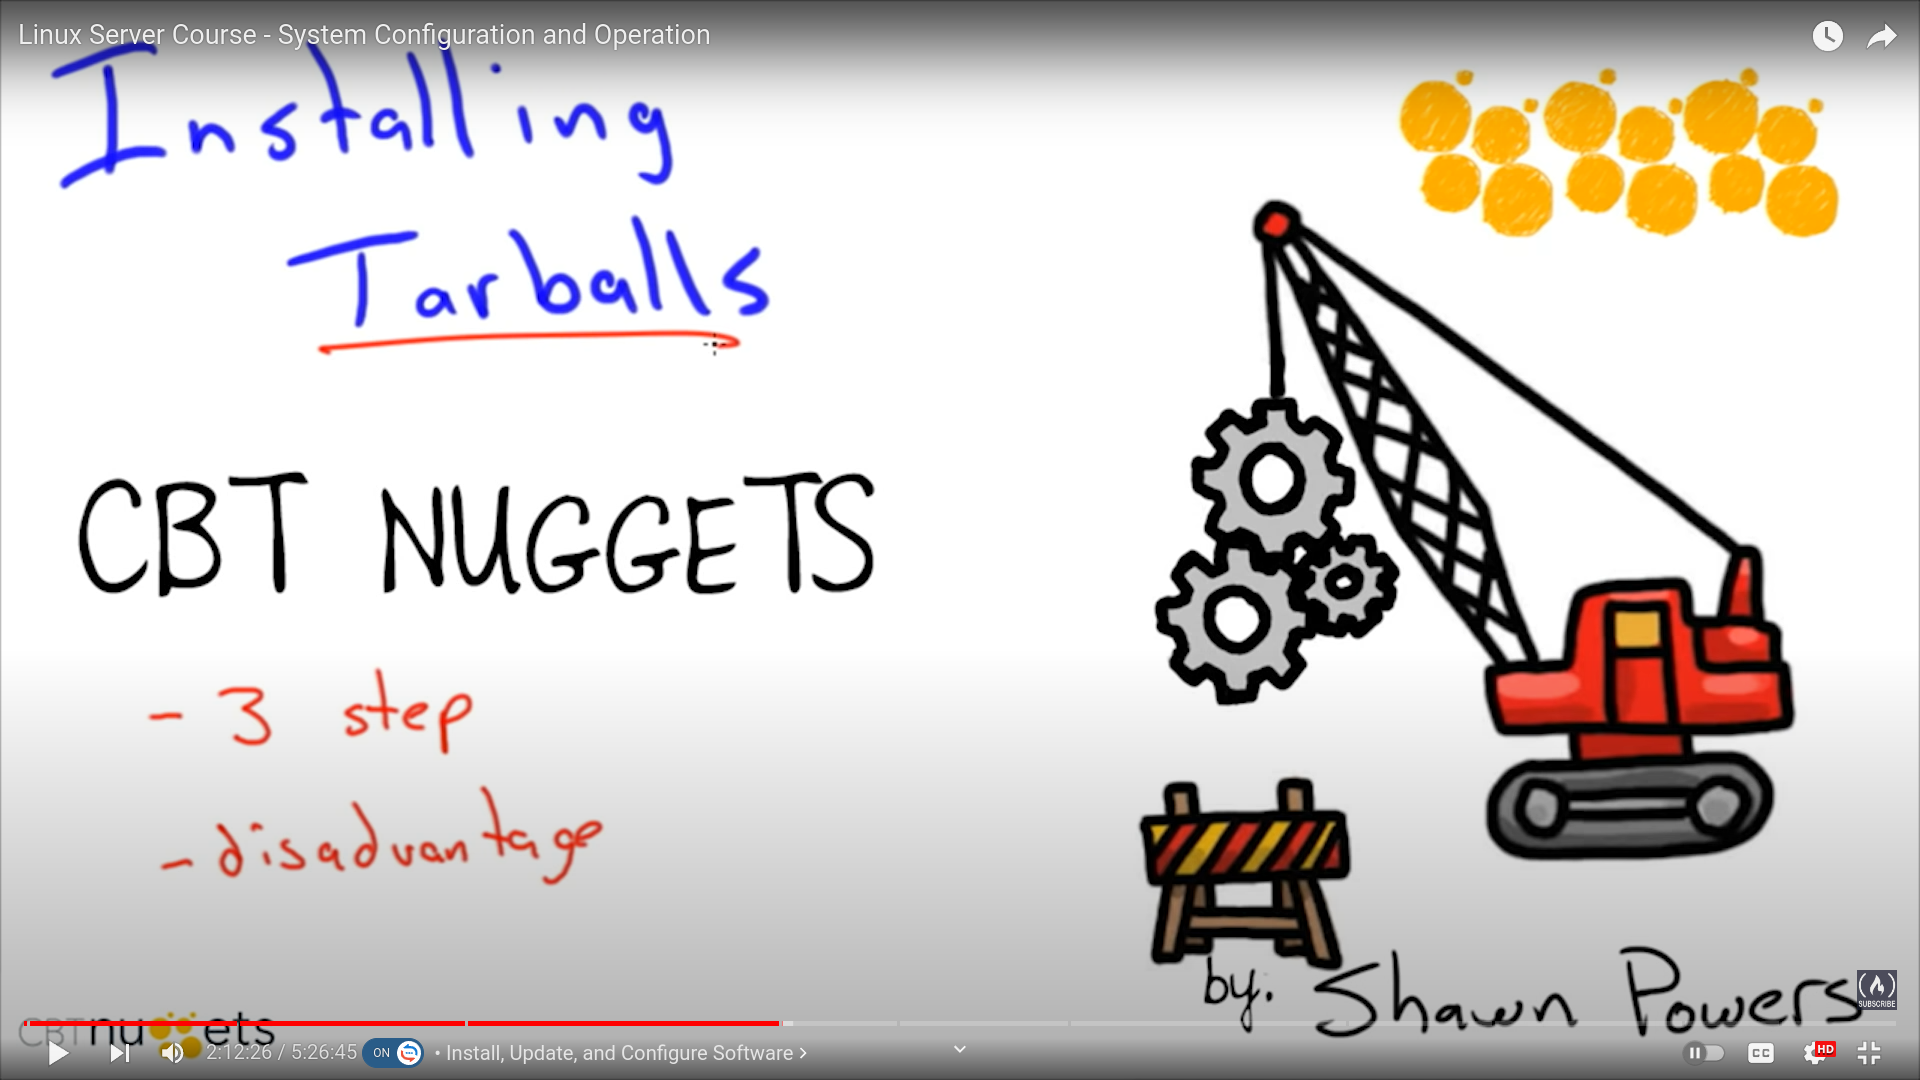 Linux Server Course - System Configuration and Operation
Installing
Tarballs
CBT NUGGETS
- 3 step
- disadvantage
by: Shawn Powers
SUBSCRIBE
CBTnuggets
2:12:26 / 5:26:45 ON • Install, Update, and Configure Software > CC HD